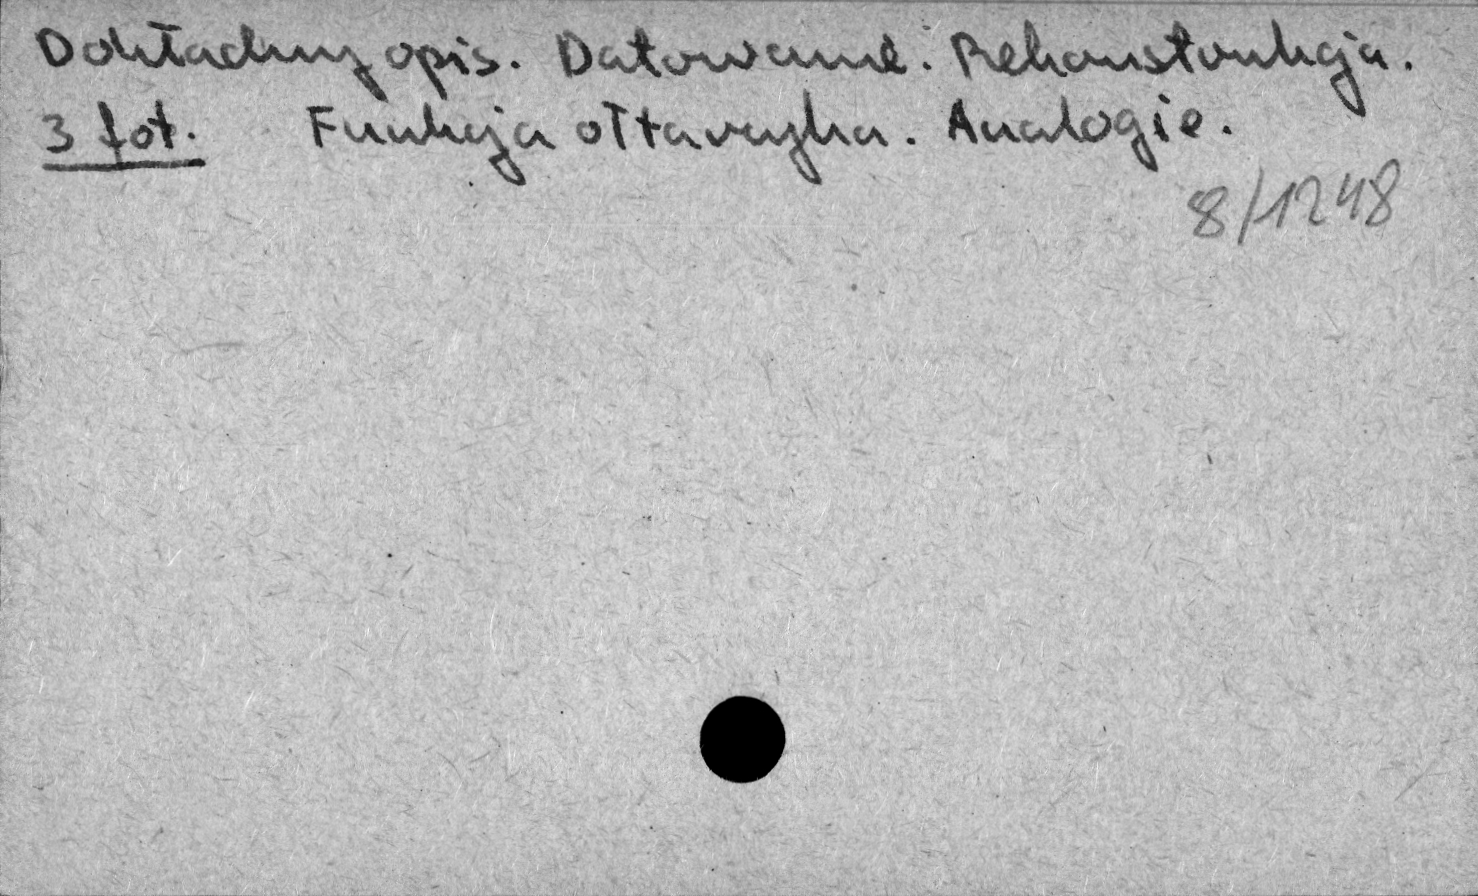 Dokładny opis. Datowanie. Rekonstrukcja.
3 fot. Funkcja ołtarzyka. Analogie.
8/1248